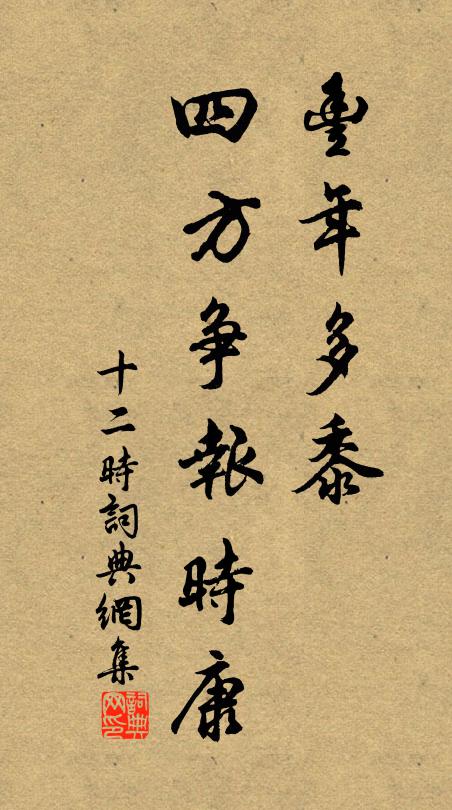 豊年多黍
四方争報時康
十二時詞典網集
詞典
网印